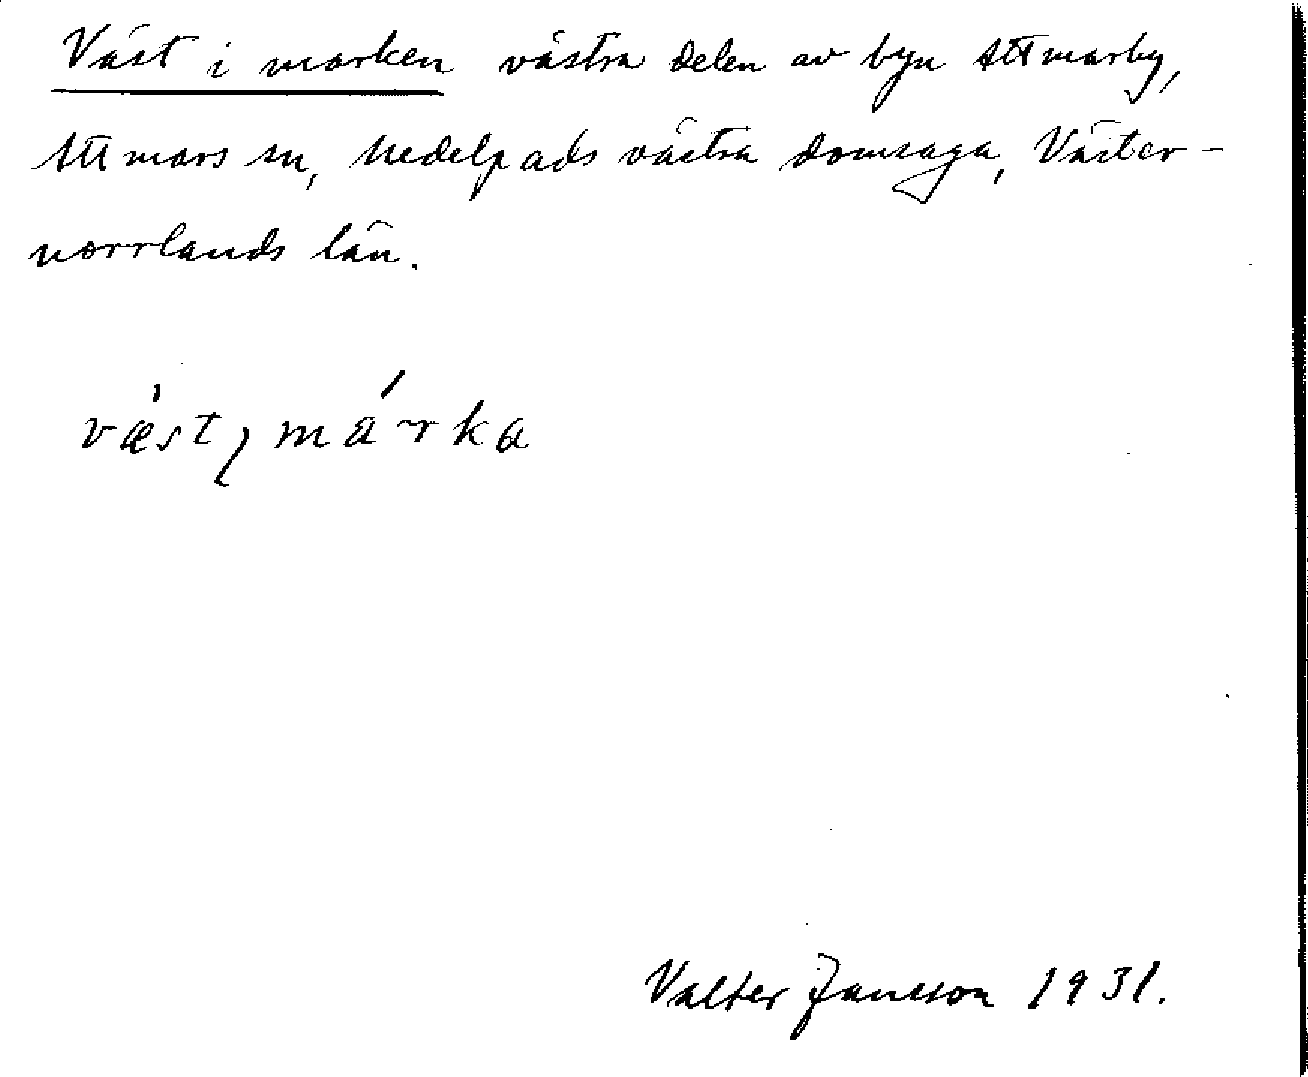 Väst i marken västra delen av byn Attmarby,
Attmars sn, Medelpads västra domsaga, Väster-
norrlands län.
væ̀stɩmárka
Valter Jansson 1931.